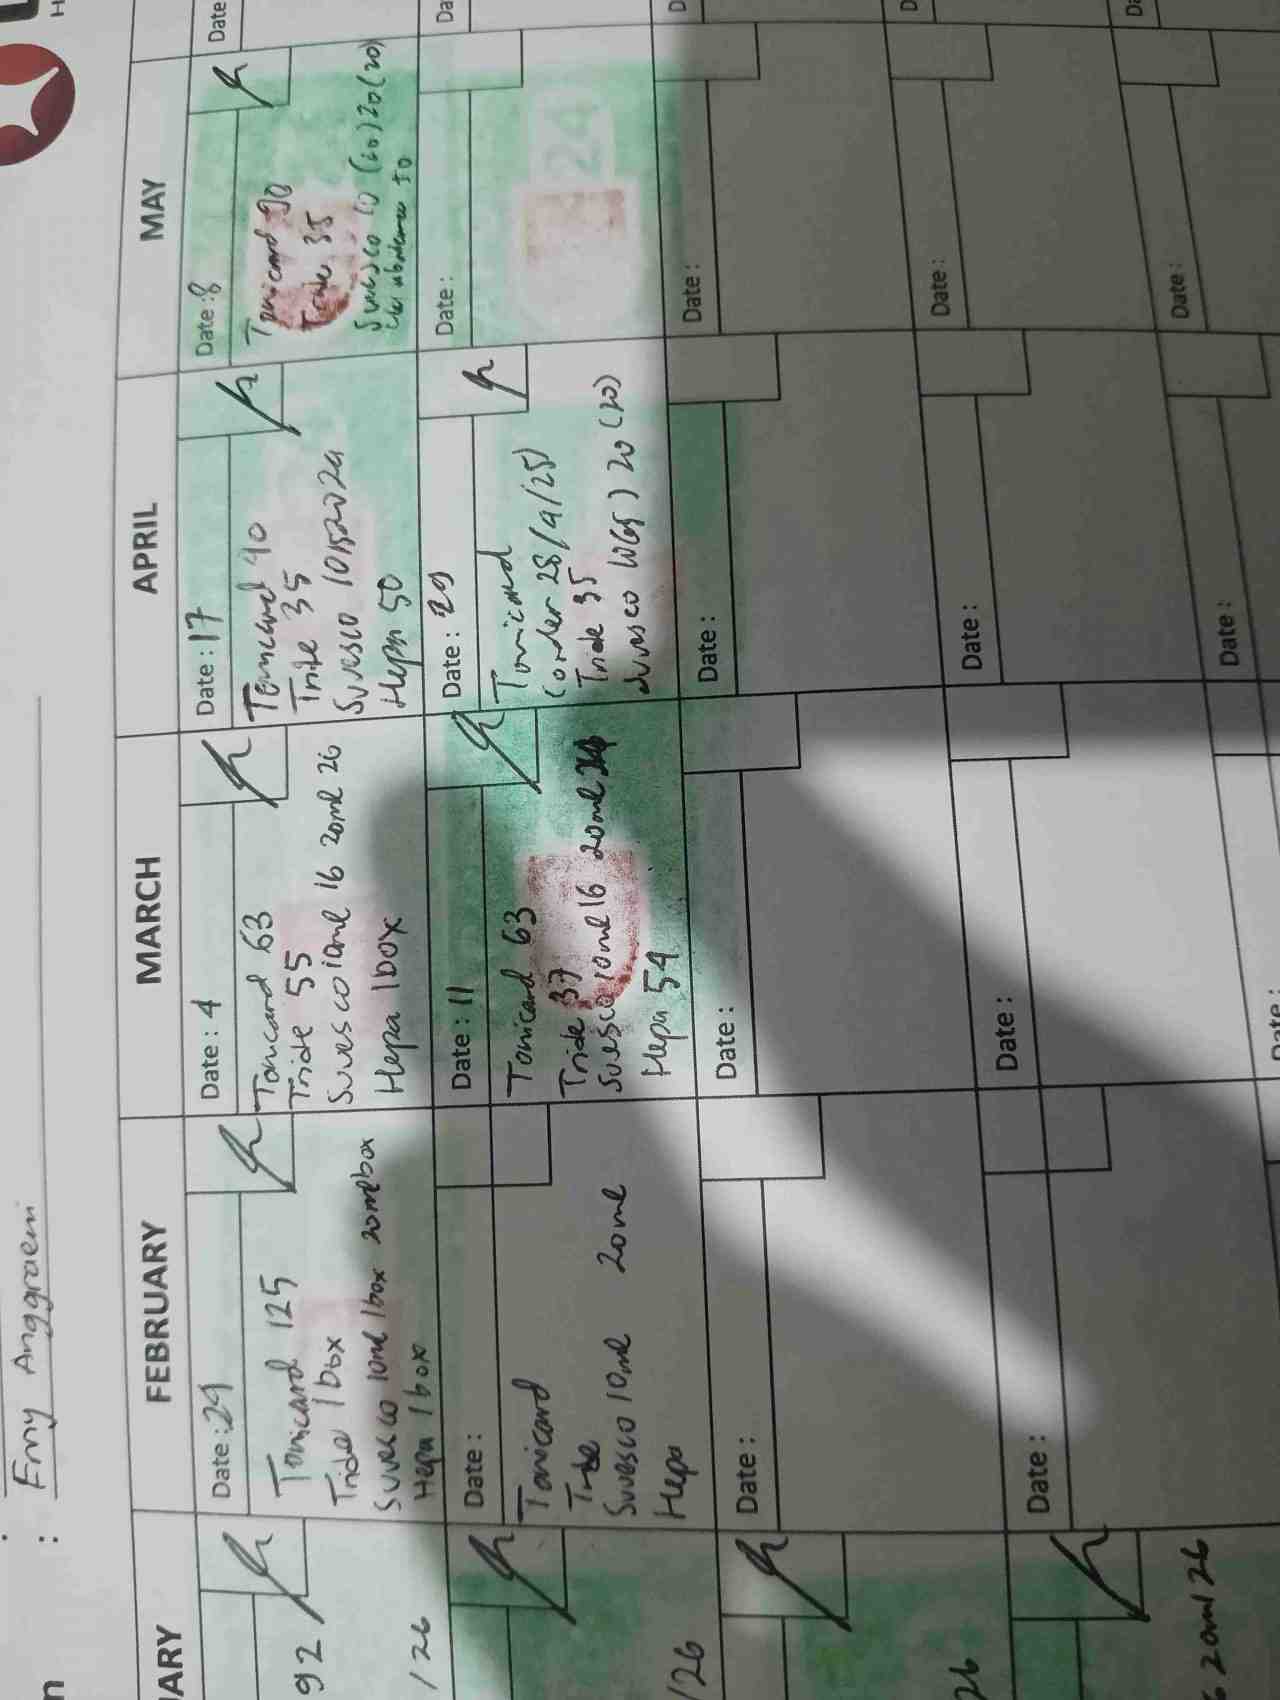 : Emy Anggraeni
FEBRUARY
MARCH
APRIL
MAY
Date : 29
Tonicard 125
Tride 1 box
Suvesco 10ml 1box 20ml box
Hepa 1 box
Date : 4
Tonicard 63
Tride 55
Suvesco 10ml 16 20ml 26
Hepa 1 box
Date : 17
Tonicard 90
Tride 35
Suvesco
Hepa 50
Date : 8
Tonicard 90
Tride 35
Suvesco 10 (20) 20 (20)
92
/26
Date :
Tonicard
Tride
Suvesco 10ml 20ml
Hepa
Date : 11
Tonicard 63
Tride 37
Suvesco 10ml 16 20ml
Hepa 54
Date : 29
Tonicard
(order 28/4/25)
Tride 35
Suvesco 20 (20)
Date :
24
/26
Date :
Date :
Date :
Date :
26
Date :
Date :
Date :
Date :
20ml 26
Date :
Date :
Date :